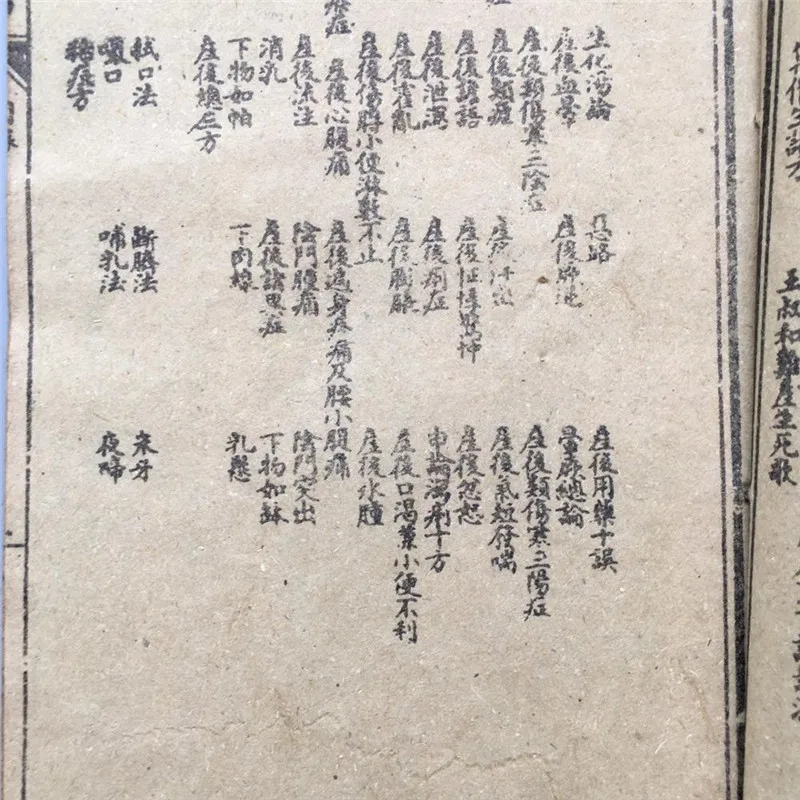 王叔和難產生死歌
生化湯論 惡路 產後用藥十誤
產後血暈 產後厥逆 暈厥總論
產後類傷寒三陰症 產後類傷寒三陽症
產後類瘧 產後汗出 產後氣短發喘
產後譫語 產後怔忡驚悸 產後忿怒
產後泄瀉 產後痢症 申論瀉痢十方
產後霍亂 產後臌脹 產後口渴兼小便不利
產後傷脬小便淋數不止 產後水腫
產後心腹痛 產後遍身疼痛及腰小腹痛
產後流注 陰門腫痛 陰門突出
消乳 產後諸異症 下物如缽
下物如帕 下肉線 乳懸
產後總 方
拭口法 斷臍法 末牙
噤口 哺乳法 夜啼